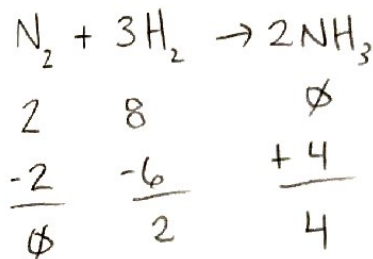 N₂ + 3H₂ → 2NH₃
2 8 0
-2 -6 +4
0 2 4